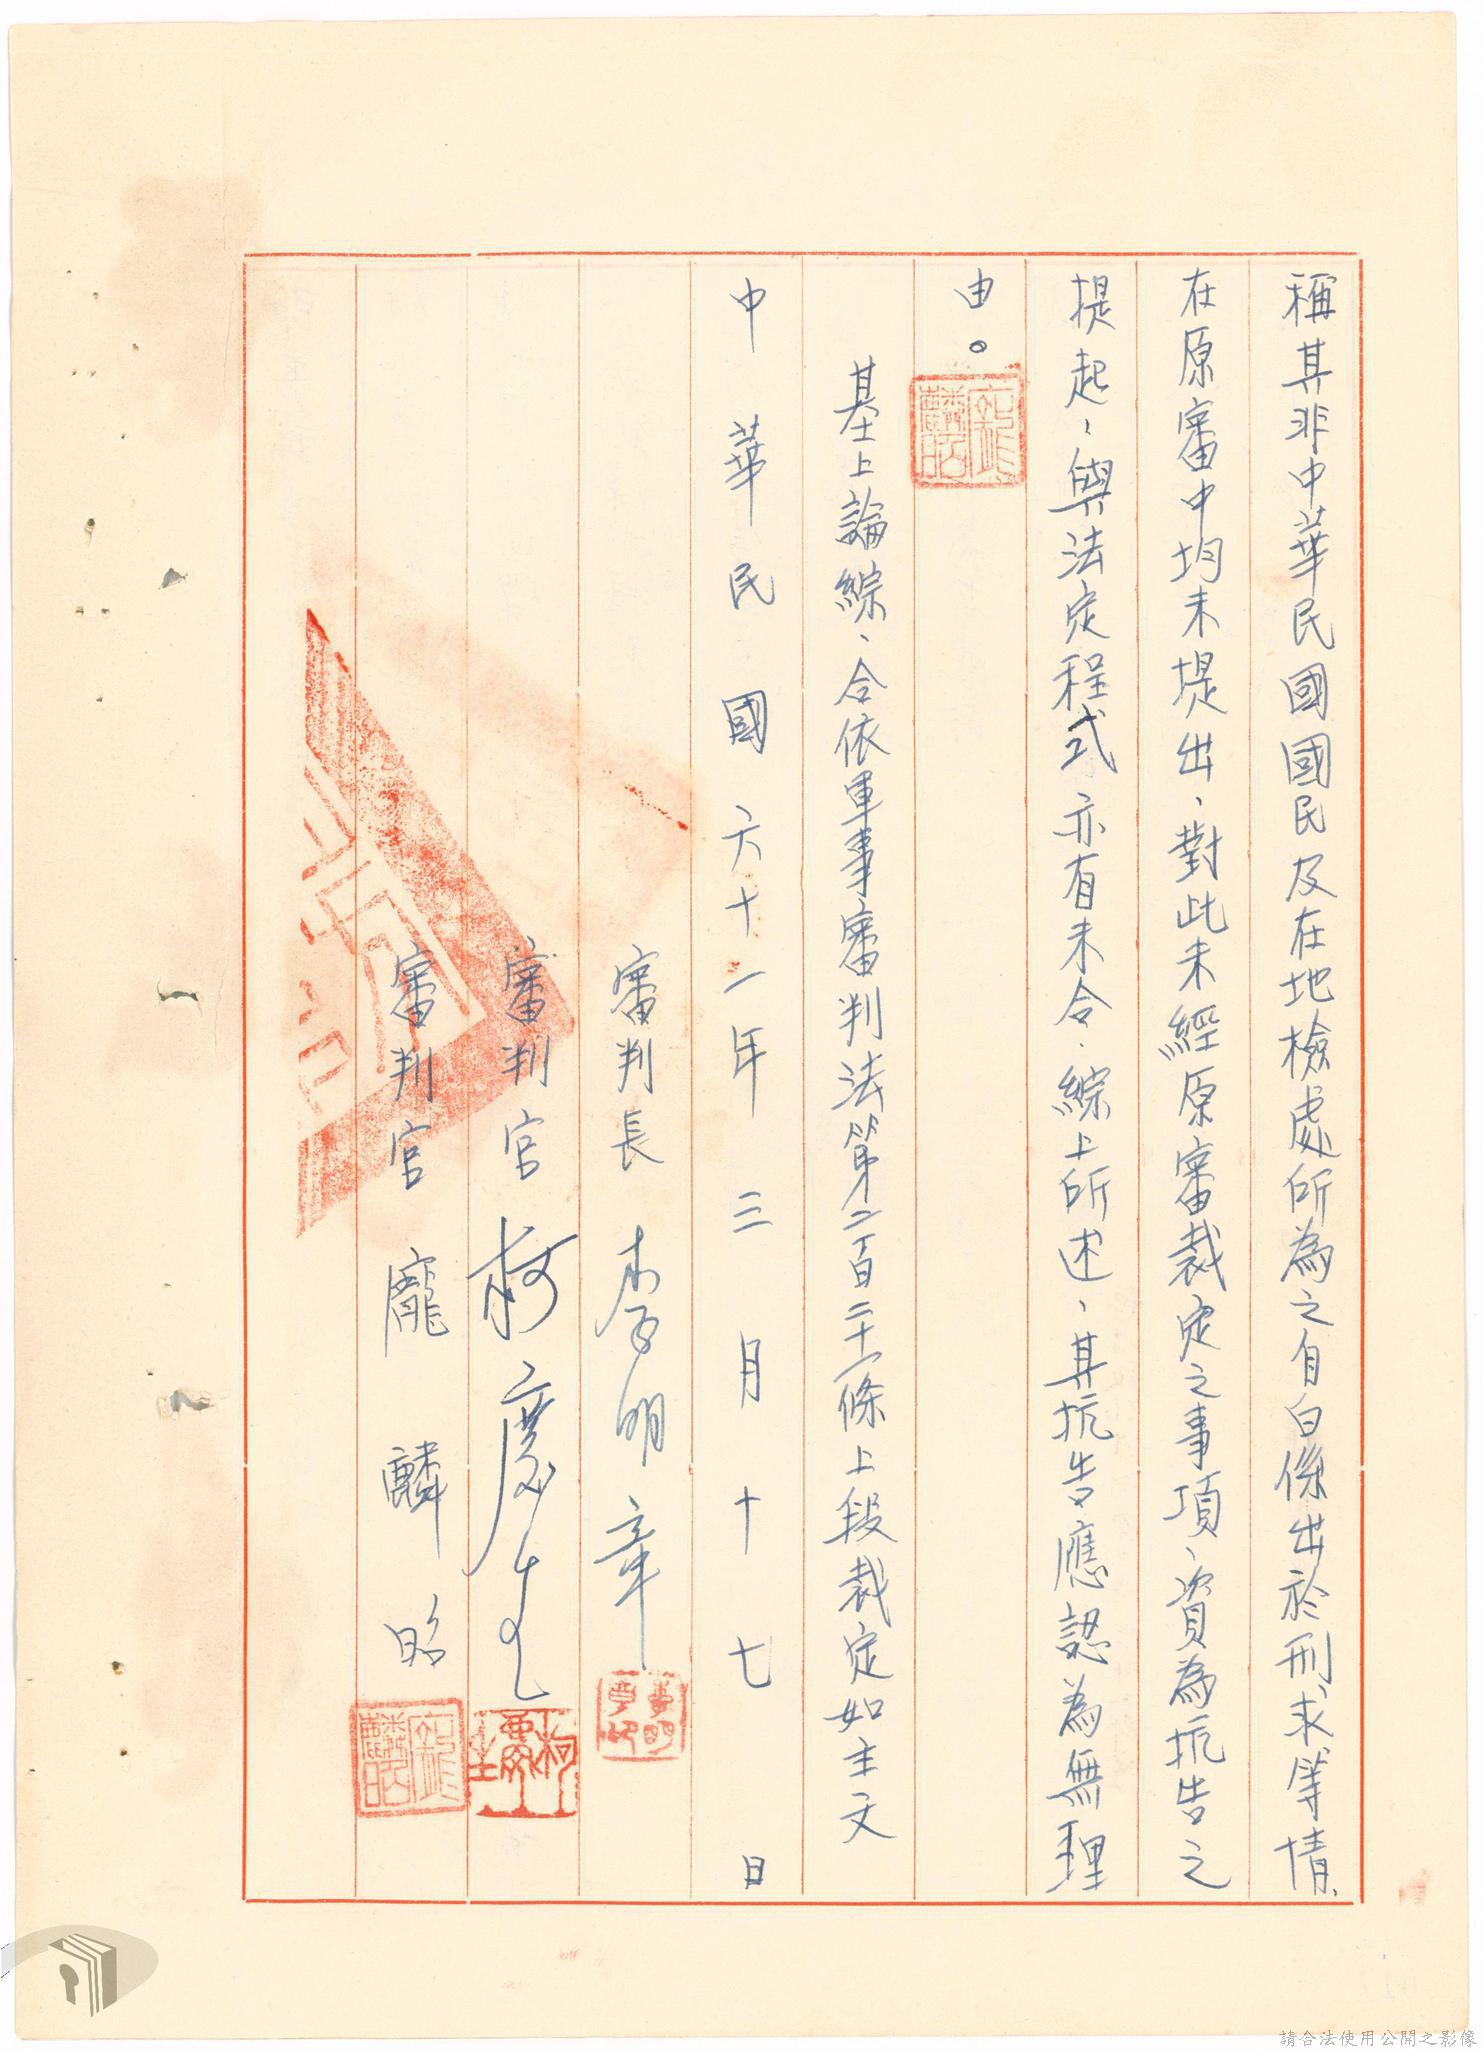 稱其非中華民國國民及在地檢處所為之自白係出於刑求等情、
在原審中均未提出、對此未經原審裁定之事項、資為抗告之
提起、與法定程式亦有未合、綜上所述、其抗告應認為無理
由。
基上論綜、合依軍事審判法第二百二十一條上段裁定如主文
中華民國六十一年三月十七日
審判長 李明章
審判官 柯慶生
審判官 龐麟昭
請合法使用公開之影像